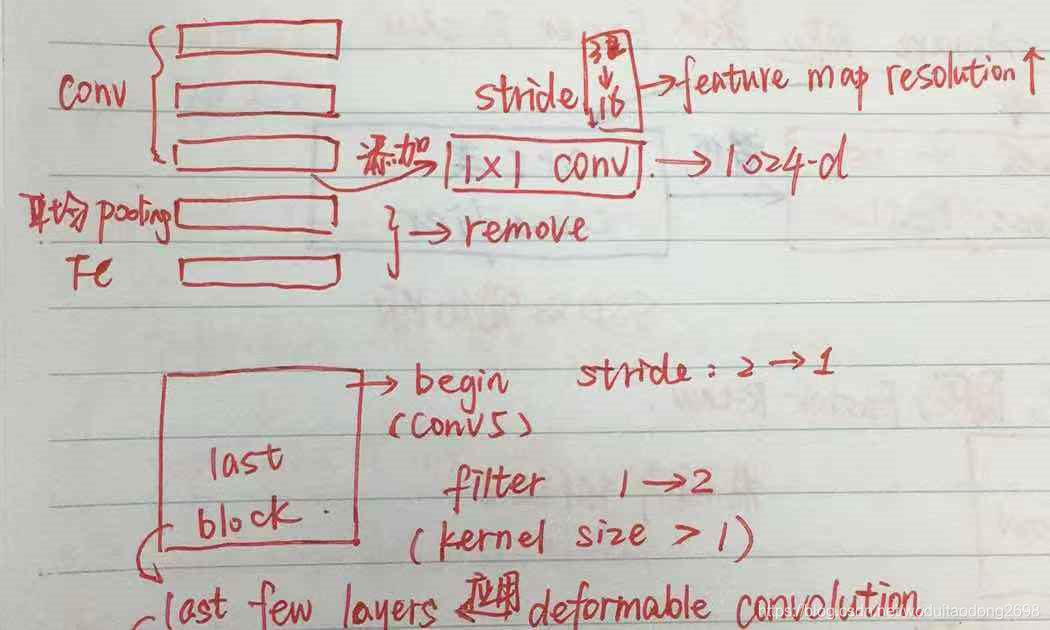 conv
stride 32 ↓ 16 → feature map resolution ↑
添加 1×1 conv → 1024-d
平均 pooling
} → remove
FC
→ begin stride : 2 → 1
(conv5)
last
block
filter 1 → 2
(kernel size > 1)
last few layers ← 应用 deformable convolution
https://blog.csdn.net/woduitaodong2698